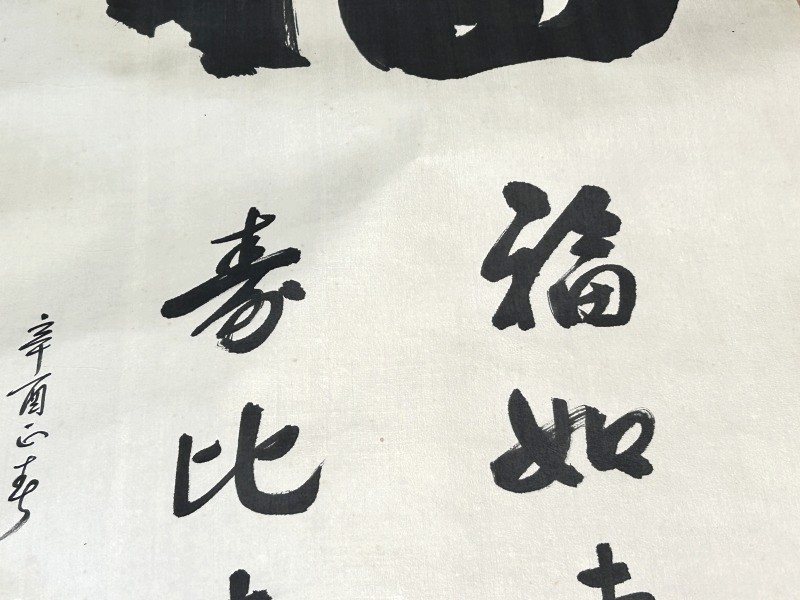 福如
寿比
辛酉正春